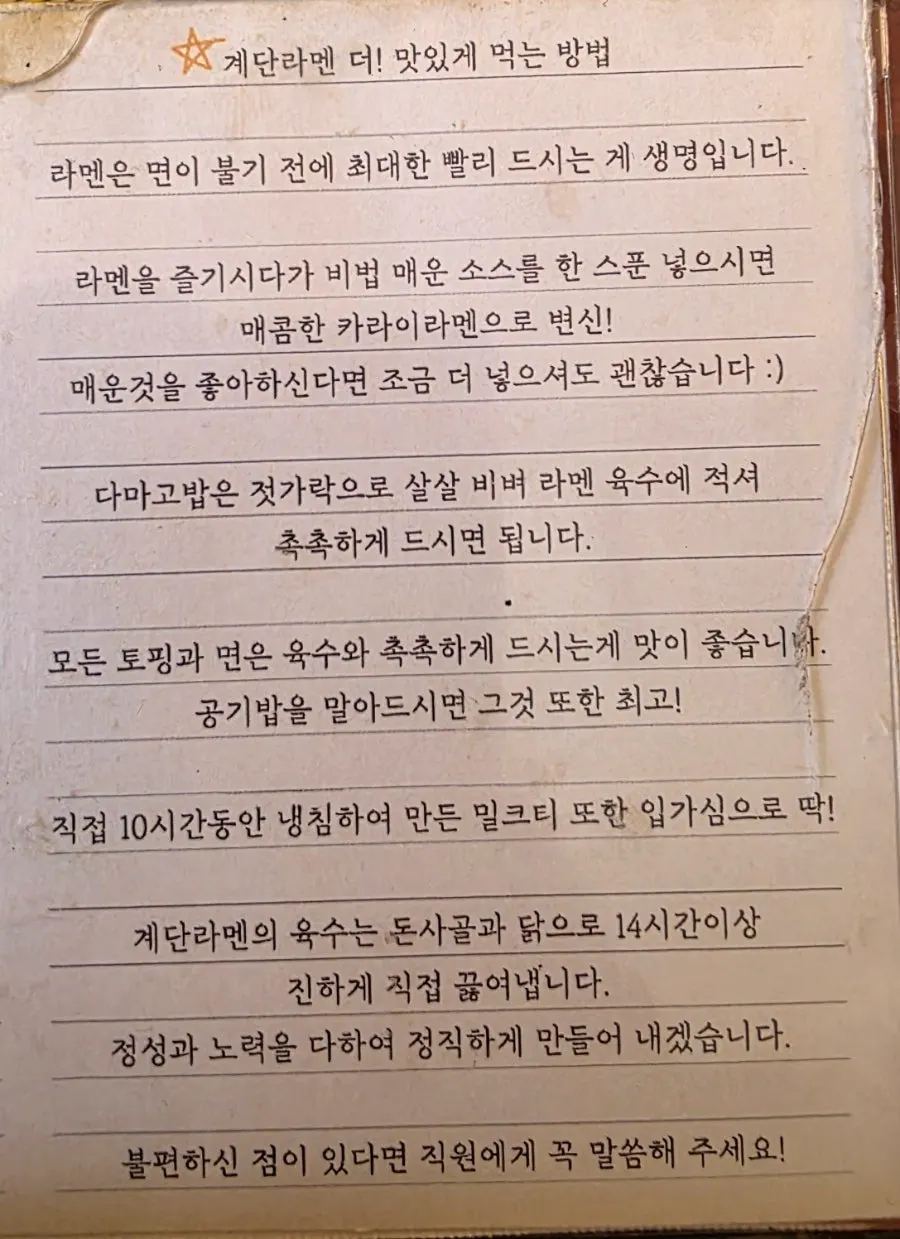 계단라멘 더! 맛있게 먹는 방법
라멘은 면이 불기 전에 최대한 빨리 드시는 게 생명입니다.
라멘을 즐기시다가 비법 매운 소스를 한 스푼 넣으시면
매콤한 카라이라멘으로 변신!
매운것을 좋아하신다면 조금 더 넣으셔도 괜찮습니다 :)
다마고밥은 젓가락으로 살살 비벼 라멘 육수에 적셔
촉촉하게 드시면 됩니다.
모든 토핑과 면은 육수와 촉촉하게 드시는게 맛이 좋습니다.
공기밥을 말아드시면 그것 또한 최고!
직접 10시간동안 냉침하여 만든 밀크티 또한 입가심으로 딱!
계단라멘의 육수는 돈사골과 닭으로 14시간이상
진하게 직접 끓여냅니다.
정성과 노력을 다하여 정직하게 만들어 내겠습니다.
불편하신 점이 있다면 직원에게 꼭 말씀해 주세요!